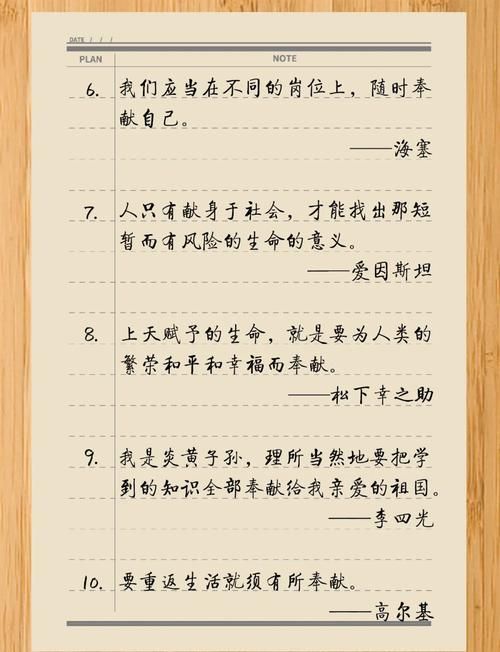 DATE / / /
PLAN NOTE
6. 我们应当在不同的岗位上，随时奉
献自己。
——海塞
7. 人只有献身于社会，才能找出那短
暂而有风险的生命的意义。
——爱因斯坦
8. 上天赋予的生命，就是要为人类的
繁荣和平和幸福而奉献。
——松下幸之助
9. 我是炎黄子孙，理所当然地要把学
到的知识全部奉献给我亲爱的祖国。
——李四光
10. 要重返生活就须有所奉献。
——高尔基